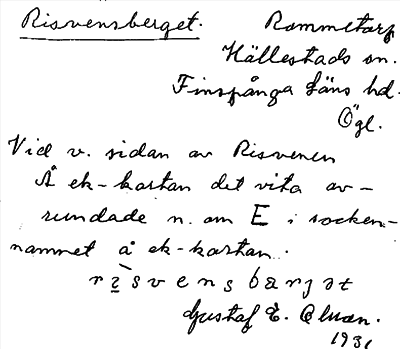 Risvensberget.
Rommetorp
Hällestads sn.
Finspånga läns hd.
Ögl.
Vid v. sidan av Risvenen
Å ek-kartan det vita av-
rundade n. om E i socken-
namnet å ek-kartan.
Gustaf E.
1931